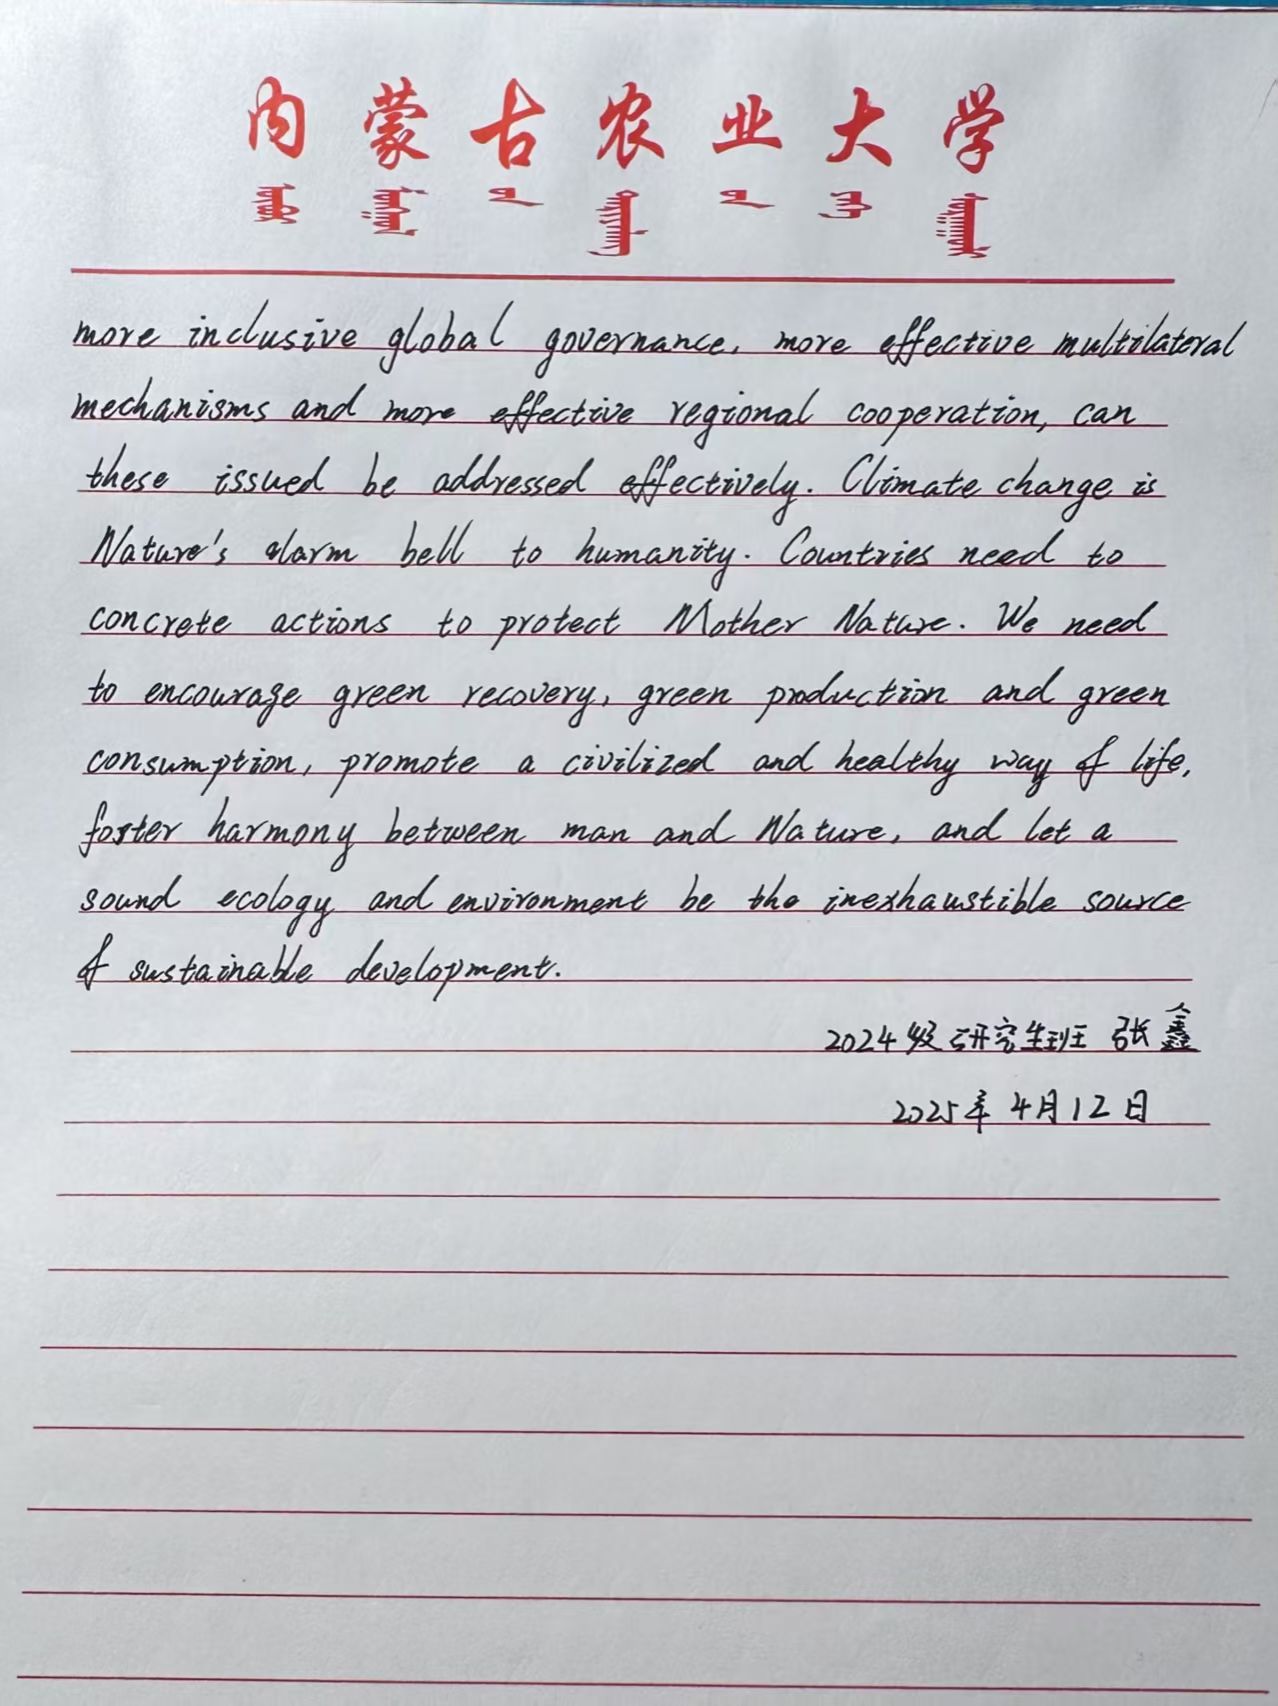 内蒙古农业大学
more inclusive global governance, more effective multilateral
mechanisms and more effective regional cooperation, can
these issued be addressed effectively. Climate change is
Nature's alarm bell to humanity. Countries need to
concrete actions to protect Mother Nature. We need
to encourage green recovery, green production and green
consumption, promote a civilized and healthy way of life,
foster harmony between man and Nature, and let a
sound ecology and environment be the inexhaustible source
of sustainable development.
2024级研究生班 张鑫
2025年4月12日